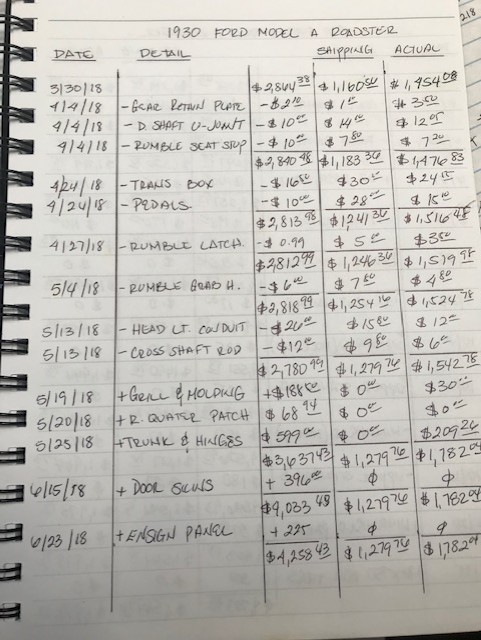 1930 FORD MODEL A ROADSTER
DATE DETAIL SHIPPING ACTUAL
3/30/18 $2,864.38 $1,160.50 $1,454.08
4/4/18 - GEAR RETAIN PLATE $3.50
4/4/18 - D. SHAFT U-JOINT - $10.00 $12.05
4/4/18 - RUMBLE SEAT STOP - $10.00 $7.80 $7.20
$1,183.36 $1,476.83
4/24/18 - TRANS BOX $24.15
4/24/18 - PEDALS - $10.00 $28.00
$2,813.98 $1,241.36 $1,516.48
4/27/18 - RUMBLE LATCH - $0.99 $5.00 $3.50
$2,812.99 $1,246.36 $1,519.98
5/4/18 - RUMBLE GRAB H. $7.80 $4.80
$2,818.99 $1,254.16 $1,524.78
5/13/18 - HEAD LT. CONDUIT - $26.00 $15.80 $12.00
5/13/18 - CROSS SHAFT ROD - $12.00 $9.80 $6.00
$2,780.99 $1,279.76 $1,542.78
5/19/18 + GRILL & MOLDING $0.00 $30.00
5/20/18 + R. QUATER PATCH $68.94 $0.00 $0.00
5/25/18 + TRUNK & HINGES $599.00 $0.00 $209.26
$3,637.43 $1,279.76 $1,782.04
6/15/18 + DOOR SKINS + 396.00 ϕ ϕ
$4,033.43 $1,279.76 $1,782.04
6/23/18 + ENSIGN PANEL + 225 ϕ ϕ
$4,258.43 $1,279.76 $1,782.04